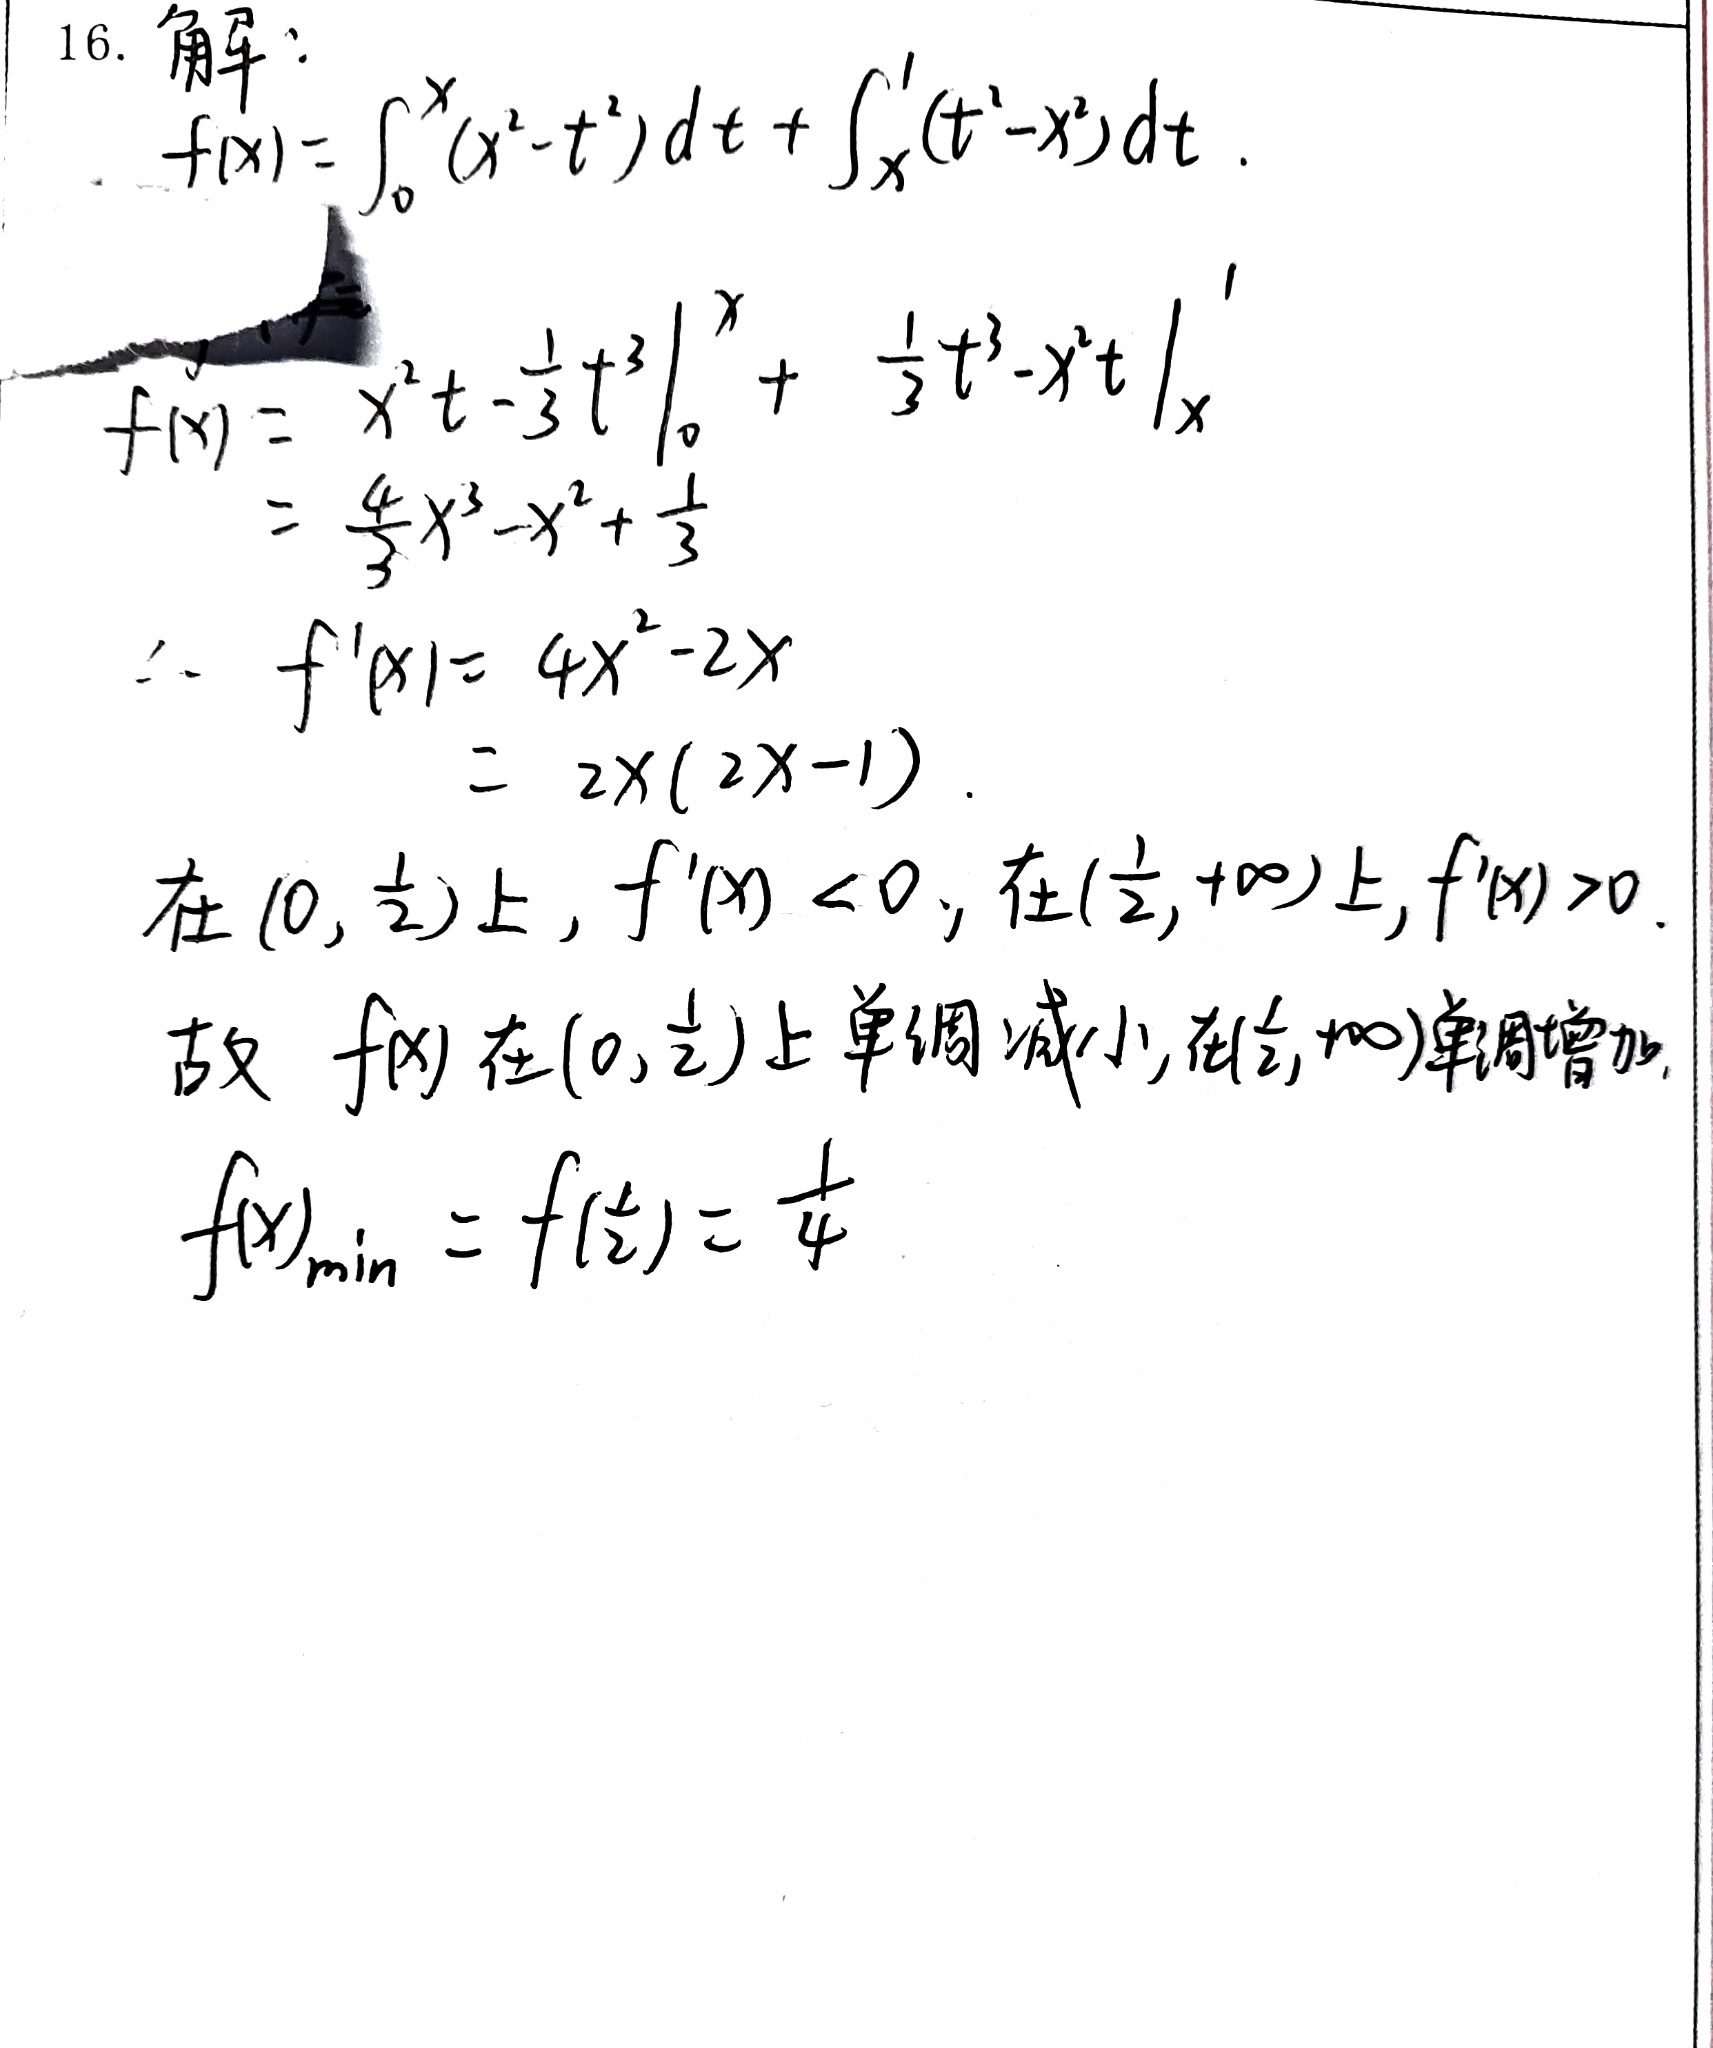 16. 解:
f(x)=∫₀ˣ(x²-t²)dt+∫ₓ¹(t²-x²)dt.
f(x)= x²t-⅓t³|₀ˣ + ⅓t³-x²t|ₓ¹
= 4/3x³-x²+1/3
∴ f'(x)= 4x²-2x
= 2x(2x-1).
在(0, 1/2)上, f'(x)<0, 在(1/2, +∞)上, f'(x)>0.
故 f(x)在(0, 1/2)上单调减小, 在(1/2, +∞)单调增加.
f(x)min = f(1/2) = 1/4